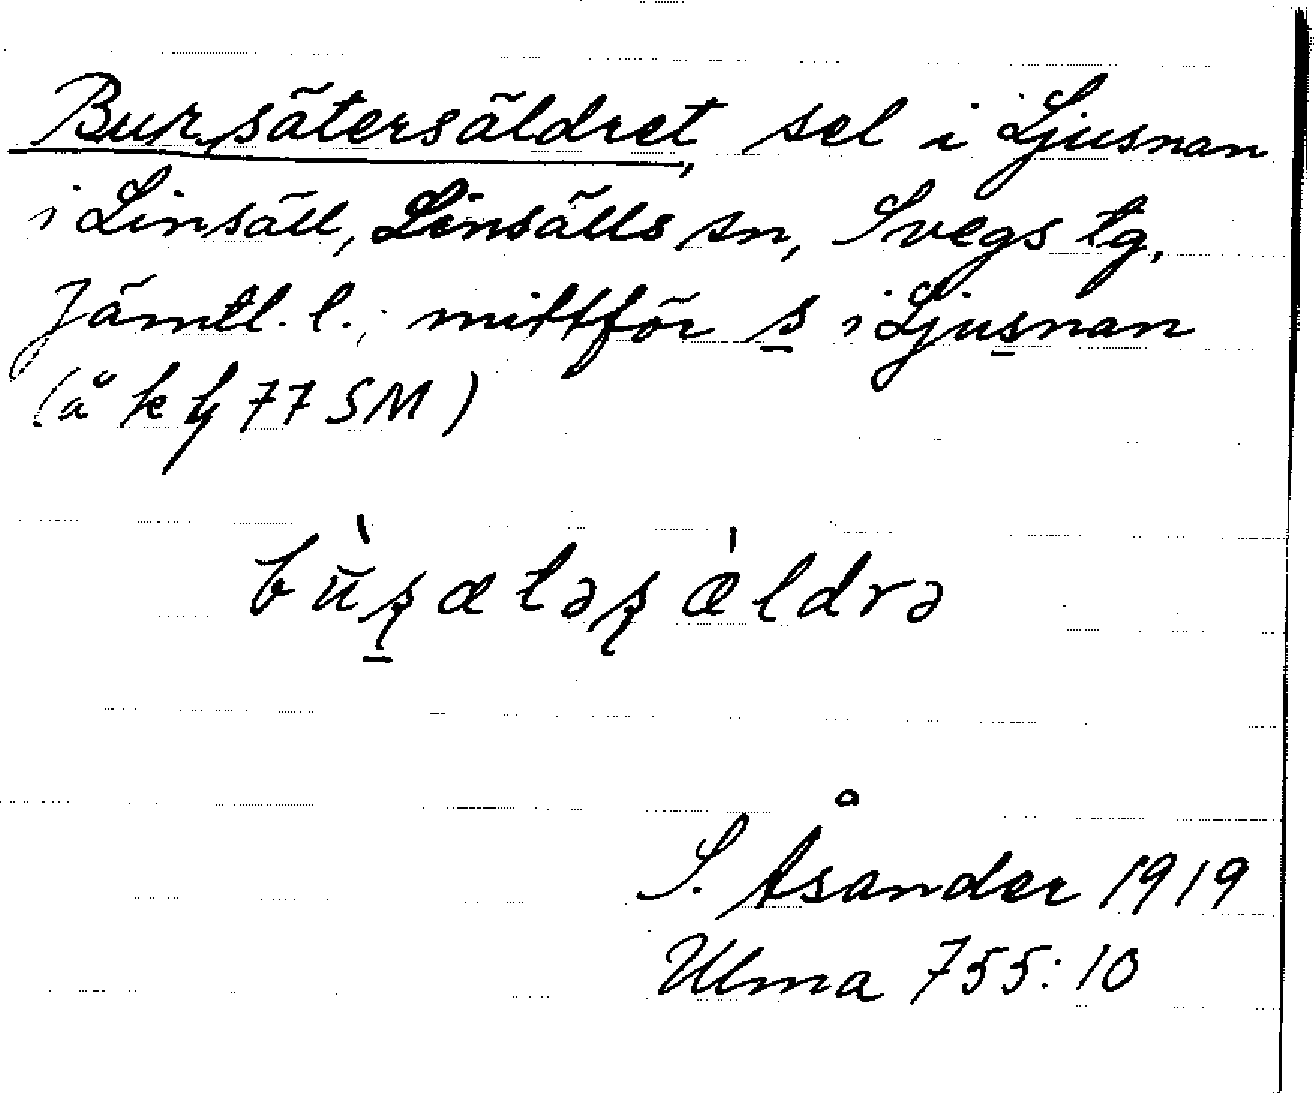 Bursätersäldret, sel i Ljusnan
i Linsäll, Linsälls sn, Svegs tg,
Jämtl. l.; mittför s i Ljusnan
(å k bl 77 SM)
bùʂætəʂæ̀ldrə
S. Åsander 1919
Ulma 755:10